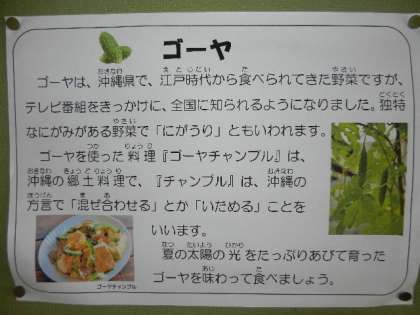 ゴーヤ
ゴーヤは、沖縄県で、江戸時代から食べられてきた野菜ですが、
テレビ番組をきっかけに、全国に知られるようになりました。独特
なにがみがある野菜で「にがうり」ともいわれます。
ゴーヤを使った料理『ゴーヤチャンプル』は、
沖縄の郷土料理で、『チャンプル』は、沖縄の
方言で「混ぜ合わせる」とか「いためる」ことを
いいます。
夏の太陽の光をたっぷりあびて育った
ゴーヤを味わって食べましょう。
ゴーヤチャンプル